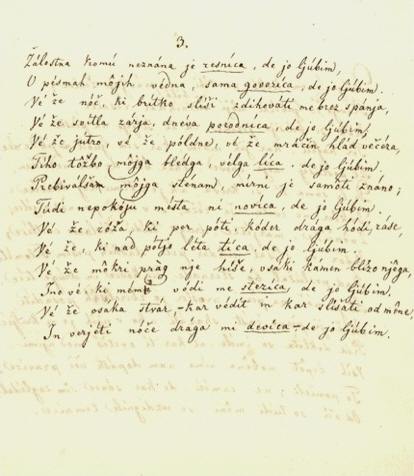 3.
Žálostna komú neznána je resníca, de jo ljúbim,
V pésmah mójih védna, sama govoríca, de jo ljubim.
Vé že nóč, ki brítko slíši zdihováti me brez spánja,
Vé že svitla zárja, dneva porodníca, de jo ljúbim;
Vé že jutro, vé že, pôldne, vé že mráčni hlád večéra,
Tího tôžbo môjga blédga, vélga líca, de jo ljúbim.
Prebiválšam môjga sténam, mírne je samôte znáno;
Túdi nepokôju mésta ni novica, de jo ljúbim
Vé že róža, ki per póti, kóder draga hódi, ráse,
Vé že, ki nad pótjo léta tíca, de jo ljúbim.
Vé že môkri prág nje híše, vsáki kamen blízo njéga,
Ino vé, ki méme vódi me stezíca, de jo ljúbim.
Vé že vsáka stvár, kar védit in kar slíšati od mône,
In verjéti nóče drága mi devíca – de jo ljúbim.